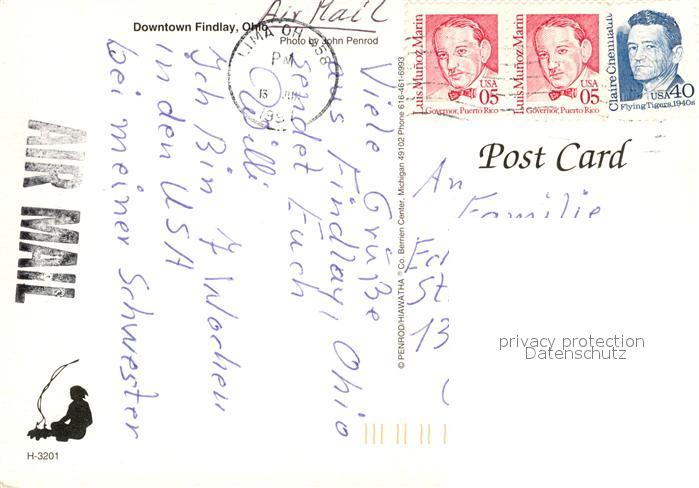 Air Mail
Downtown Findlay, Ohio
Photo by John Penrod
LIMA OH 458
PM
13
1991
Luis Muñoz Marin
USA 05
Governor, Puerto Rico
Luis Muñoz Marin
USA 05
Governor, Puerto Rico
Claire Chennault
USA 40
Flying Tigers, 1940s
Post Card
Viele Grüße
aus Findlay, Ohio
sendet Euch
Willi
Ich Bin 7 Wochen
in den USA
bei meiner Schwester
An
Familie
St.
13
© PENROD/HIAWATHA ® Co. Berrien Center, Michigan 49102 Phone 616-461-6993
AIR MAIL
privacy protection
Datenschutz
H-3201